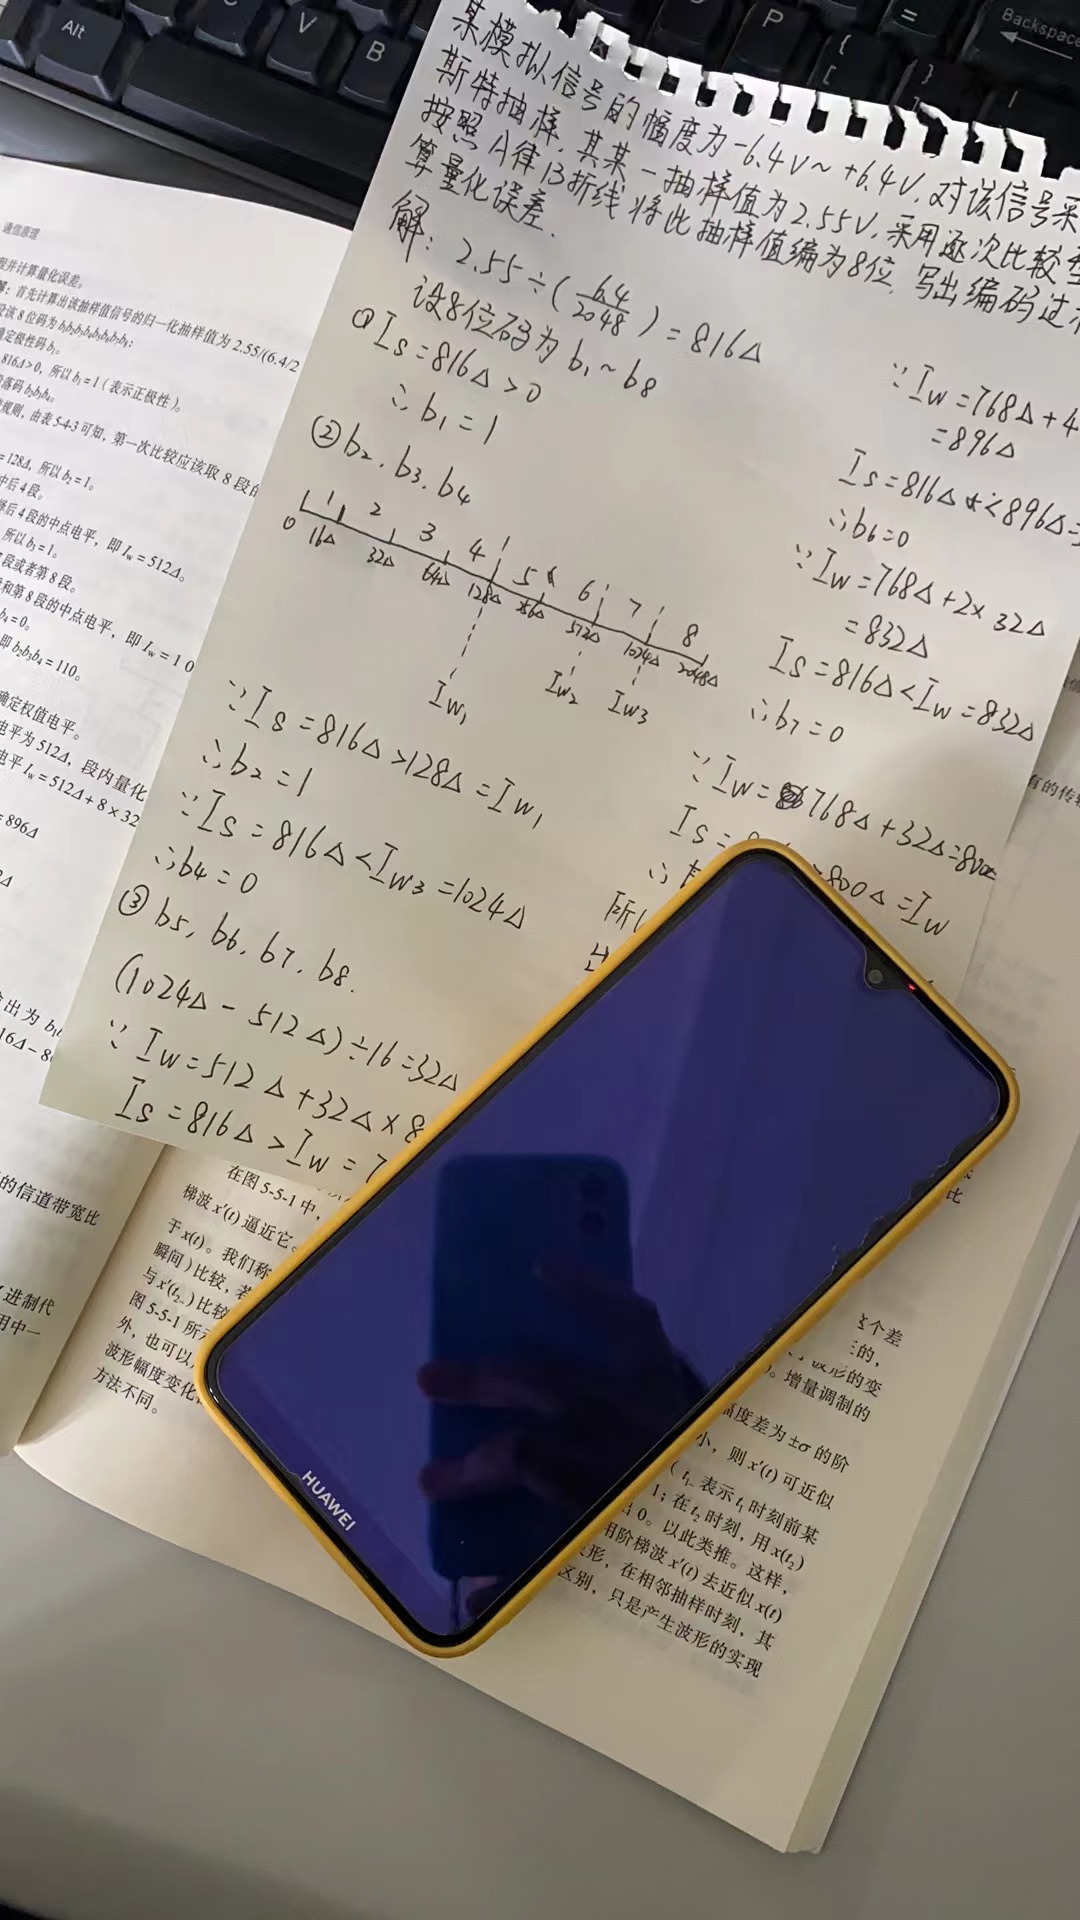 Alt
C
V
B
P
{
[
}
]
=
|
Backspace
某模拟信号的幅度为-6.4V~+6.4V,对该信号采
斯特抽样,其某一抽样值为2.55V,采用逐次比较型
按照A律13折线将此抽样值编为8位,写出编码过
算量化误差.
解: 2.55÷(6.4/2048)=816Δ
设8位码为b1~b8
① Is=816Δ>0
∴b1=1
② b2.b3.b4
1 2 3 4 5 6 7 8
0 16Δ 32Δ 64Δ 128Δ 256Δ 512Δ 1024Δ 2048Δ
Iw1 Iw2 Iw3
∵Is=816Δ>128Δ=Iw1
∴b2=1
∵Is=816Δ<Iw3=1024Δ
∴b4=0
③ b5,b6.b7.b8.
(1024Δ-512Δ)÷16=32Δ
∵Iw=512Δ+32Δ×8
Is=816Δ>Iw=7
∵Iw=768Δ+4
=896Δ
Is=816Δ<896Δ=
∴b6=0
∵Iw=768Δ+2×32Δ
=832Δ
Is=816Δ<Iw=832Δ
∴b7=0
∵Iw=768Δ+32Δ=800Δ
Is=
800Δ=Iw
∴
所
通信原理
程并计算量化误差。
解:首先计算出该抽样值信号的归一化抽样值为 2.55/(6.4/2
设该8位码为b1b2b3b4b5b6b7b8:
确定极性码b1。
816Δ>0,所以b1=1(表示正极性)。
段落码b2b3b4。
规则,由表5-4-3可知,第一次比较应该取8段的
=128Δ,所以b2=1。
中后4段。
择后4段的中点电平,即Iw=512Δ。
所以b3=1。
7段或者第8段。
和第8段的中点电平,即Iw=10
b4=0。
即b2b3b4=110。
确定权值电平。
电平为512Δ,段内量化
电平Iw=512Δ+8×32
=896Δ
出为b1b
16Δ-8
的信道带宽比
进制代
用中一
有的传
在图5-5-1中,
梯波x'(t)逼近它。
于x(t)。我们称
瞬间)比较,若
与x'(t2-)比较
图5-5-1所示
外,也可以
波形幅度变化
方法不同。
比
这个差
波形的变
。增量调制的
幅度差为±σ的阶
小,则x'(t)可近似
(t1-表示t1时刻前某
1;在t2时刻,用x(t2)
出0。以此类推。这样,
用阶梯波x'(t)去近似x(t)
形,在相邻抽样时刻,其
区别,只是产生波形的实现
HUAWEI